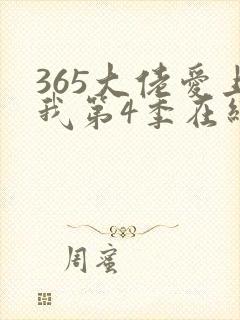 365大佬爱上
我第4季在线
周蜜